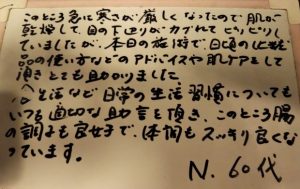 このところ急に寒さが厳しくなったので肌が
乾燥して、目の下辺りがカブれてピリピリし
ていましたが、本日の施術で、日頃の化粧
品の使い方などのアドバイスや肌ケアとして
頂きとても助かりました。
生活など日常の生活習慣についても
いつも適切な助言を頂き、このところ腸
の調子も良好で、体調もスッキリ良くな
っています。
N. 60代